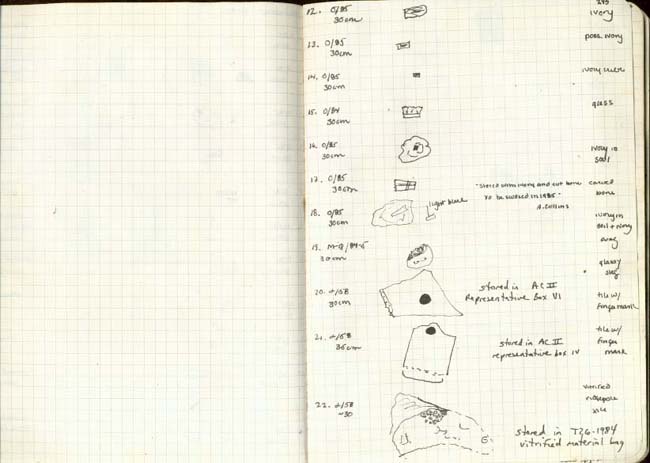 12. 0/85
30cm
ivory
13. 0/85
30cm
poss. ivory
14. 0/85
30cm
ivory
15. 0/84
30cm
glass
16. 0/85
30cm
ivory in
soil
17. 0/85
30cm
"stored with ivory and cut bone
to be studied in 1985"
A. Collins
carved
bone
18. 0/85
30cm
light blue
ivory in
soil + ivory
19.
30cm
glassy
slag
20. +/58
30cm
stored in AC II
Representative Box VI
tile w/
fingermark
21. +/58
35cm
stored in AC II
representative box IV
tile w/
finger
mark
22. +/58
~30
vitrified
stored in T26-1984
vitrified material bag